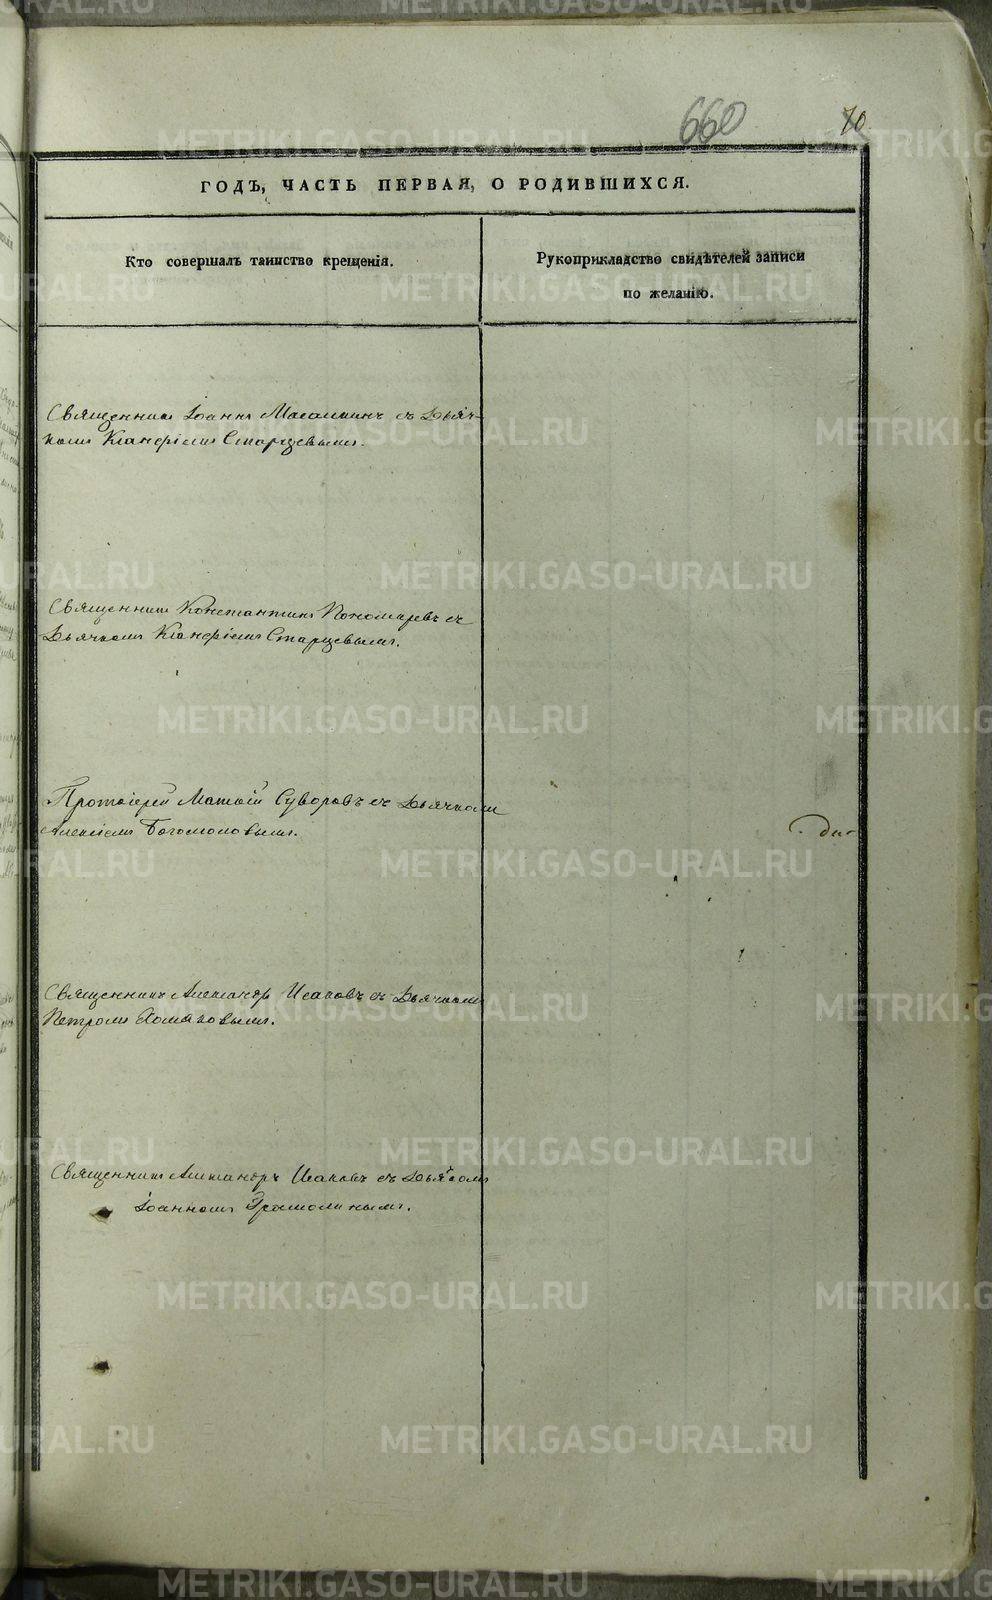 660
70
ГОДЪ, ЧАСТЬ ПЕРВАЯ, О РОДИВШИХСЯ.
Кто совершалъ таинство крещенія.
Рукоприкладство свидѣтелей записи
по желанію.
Священникъ Іоаннъ съ Дьяч-
комъ Старцевымъ.
Священникъ Константинъ Пономаревъ съ
Дьячкомъ Старцевымъ.
Протоіерей Матѳій Суворовъ съ Дьячкомъ
Алексіемъ Богомоловымъ.
Священникъ Александръ Исаковъ съ Дьячкомъ
Петромъ Хомяковымъ.
Священникъ Александръ Исаковъ съ Дьячкомъ
Іоанномъ
METRIKI.GASO-URAL.RU